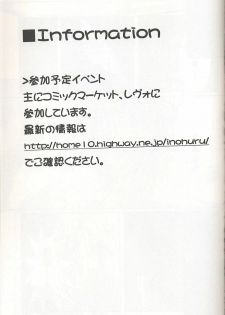 ■Information
>参加予定イベント
主にコミックマーケット、レヴォに
参加しています。
最新の情報は
http://home10.highway.ne.jp/inohuru/
でご確認ください。